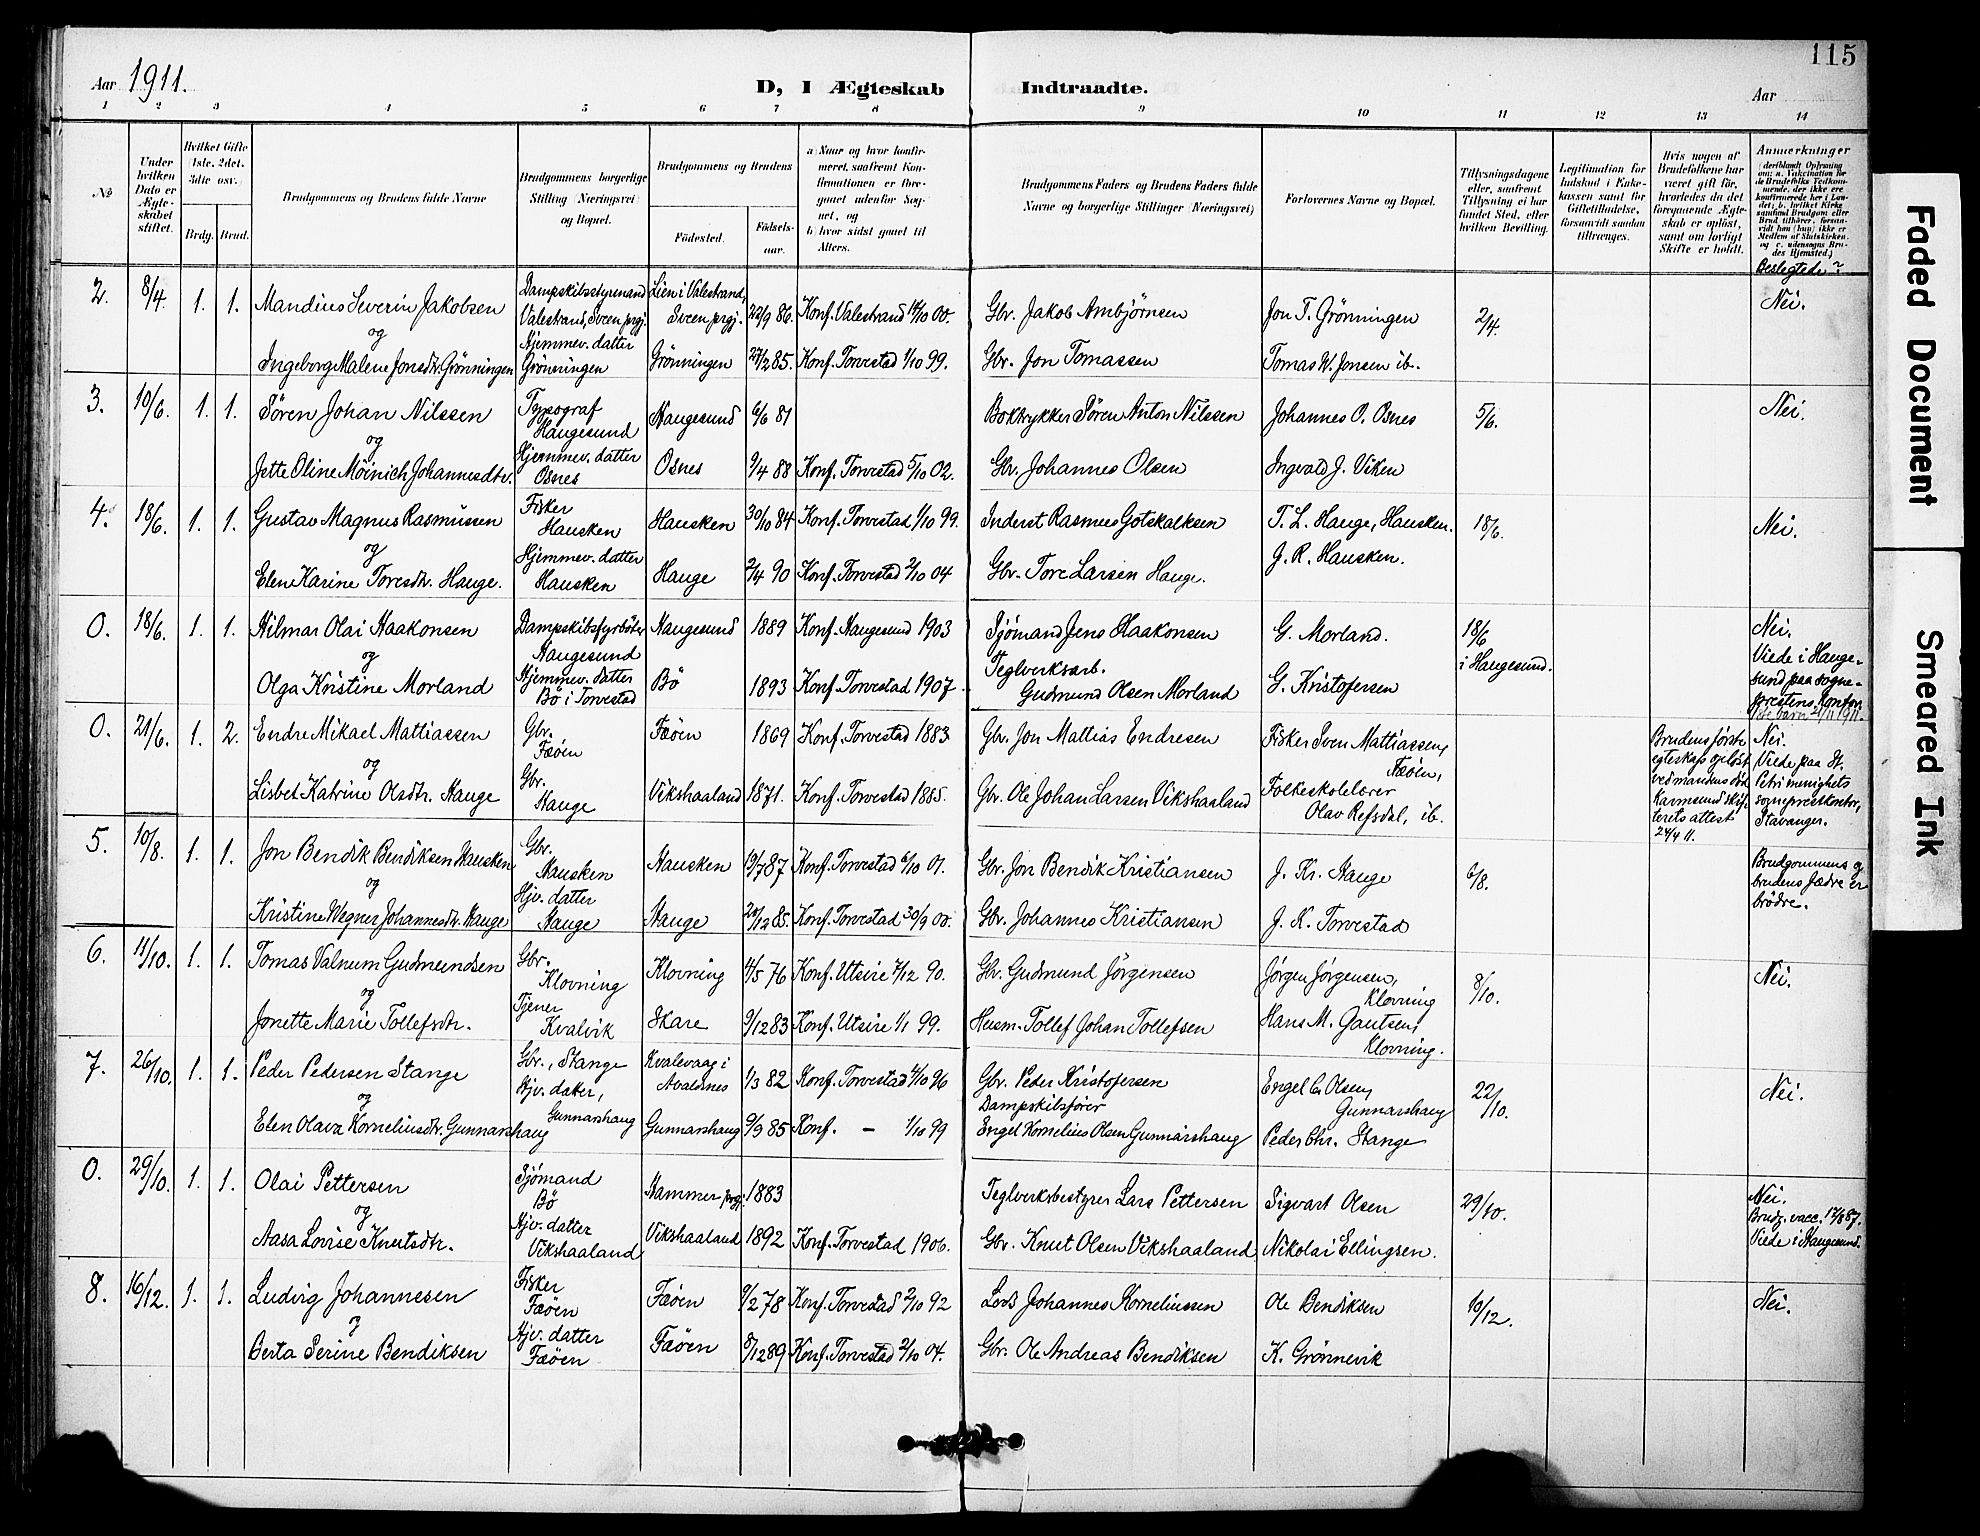 115
Aar 1911.
D, I Ægteskab Indtraadte.
Aar
1 2 3 4 5 6 7 8 9 10 11 12 13 14
№
Under hvilken Dato er Ægteskabet stiftet.
Hvilket Gifte (1ste, 2det, 3die osv.)
Brdg. Brud.
Brudgommens og Brudens fulde Navne
Brudgommens borgerlige Stilling (Næringsvei) og Bopæl.
Brudgommens og Brudens
Fødested.
Fødselsaar.
a) Naar og hvor konfirmeret, saafremt Konfirmationen er foregaaet udenfor Sognet, og
b) hvor sidst gaaet til Alters.
Brudgommens Faders og Brudens Faders fulde Navne og borgerlige Stillinger (Næringsvei)
Forlovernes Navne og Bopæl.
Tillysningsdagene eller, saafremt Tillysning ei har fundet Sted, efter hvilken Bevilling.
Legitimation for Indskud i Enkekassen samt for Giftetilladelse, forsaavidt saadan tiltrænges.
Hvis nogen af Brudefolkene har været gift før, hvorledes da det foregaaende Ægteskab er opløst, samt om lovligt Skifte er holdt.
Anmærkninger
(deriblandt Oplysning om: a. Vakcination for de Brudefolks Vedkommende, der ikke ere konfirmerede her i Landet; b. hvilket Kirkesamfund Brudgom eller Brud tilhører, forsaavidt han (hun) ikke er Medlem af Statskirken, og c. udensogns Brudes Hjemsted.)
Beslegtede?
2. 8/4. 1. 1. Mandius Severin Jakobsen
og
Ingeborg Malene Jonsdtr. Grönningen
Dampskibsstyrmand
Valestrand, Sveen prgj.
Hjemmev. datter
Grönningen
Lien i Valestrand,
Sveen prgj.
Grönningen
22/9 86.
27/2 85.
Konf. Valestrand 14/10 00.
Konf. Torvestad 1/10 99.
Gbr. Jakob Arnbjörnsen
Gbr. Jon Tomassen
Jon T. Grönningen
Tomas W. Jonsen ib.
2/4.
Nei.
3. 10/6. 1. 1. Sören Johan Nilssen
og
Jette Oline Möinich Johannesdtr.
Typograf
Haugesund
Hjemmev. datter
Osnes
Haugesund
Osnes
6/6 81
9/4 88
Konf. Torvestad 5/10 02.
Boktrykker Sören Anton Nilssen
Gbr. Johannes Olsen
Johannes O. Osnes
Ingvald J. Viken
5/6.
Nei.
4. 18/6. 1. 1. Gustav Magnus Rasmussen
og
Elen Karine Toresdtr. Hauge.
Fisker
Hausken
Hjemmev. datter
Hausken
Hausken
Hauge
30/10 84
2/4 90
Konf. Torvestad 1/10 99.
Konf. Torvestad 2/10 04
Inderst Rasmus Gotskalksen
Gbr. Tore Larsen Hauge.
T. L. Hauge, Hausken.
J. R. Hausken.
18/6.
Nei.
0. 18/6. 1. 1. Hilmar Olai Haakonsen
og
Olga Kristine Morland
Dampskibsfyrböter
Haugesund
Hjemmev. datter
Bö i Torvestad
Haugesund
Bö
1889
1893
Konf. Haugesund 1903
Konf. Torvestad 1907.
Sjömand Jens Haakonsen
Teglverksarb.
Gudmund Olsen Morland
G. Morland.
G. Kristofersen
18/6
i Haugesund.
Nei.
Viede i Haugesund paa sogneprestens kontor.
0. 21/6. 1. 2. Endre Mikael Mattiassen
og
Lisbet Katrine Olsdtr. Hauge
Gbr.
Fæöen
Gbr.
Hauge
Fæöen
Vikshaaland
1869
1871.
Konf. Torvestad 1883
Konf. Torvestad 1885.
Gbr. Jon Mattias Endresen
Gbr. Ole Johan Larsen Vikshaaland
Fisker Sven Mattiassen,
Fæöen,
Folkeskolelærer
Olav Refsdal, ib.
Brudens förste
egteskap oplöst
ved mandens död
Karmsund skifterets attest
24/4 11.
Nei.
Viede paa St.
Petri menighets
sogneprestkontor,
Stavanger.
5. 10/8. 1. 1. Jon Bendik Bendiksen Hausken
og
Kristine Wegner Johannesdtr. Hauge
Gbr.
Hausken
Hjv. datter
Hauge
Hausken
Hauge
19/7 87
28/12 85.
Konf. Torvestad 6/10 01.
Konf. Torvestad 30/9 00.
Gbr. Jon Bendik Kristiansen
Gbr. Johannes Kristiansen
J. Kr. Hauge
J. K. Torvestad
6/8.
Brudgommens og
brudens fædre er
brödre.
6. 11/10. 1. 1. Tomas Valnum Gudmundsen
og
Jonette Marie Tollefsdtr.
Gbr.
Klovning
Tjener
Kvalvik
Klovning
Skare
4/5 76
9/12 83
Konf. Utsire 7/12 90.
Konf. Utsire 1/1 99.
Gbr. Gudmund Jörgensen
Husm. Tollef Johan Tollefsen
Jörgen Jörgensen,
Klovning
Hans M. Gautsen,
Klovning.
8/10.
Nei.
7. 26/10. 1. 1. Peder Pedersen Stange
og
Elen Olava Korneliusdtr. Gunnarshaug
Gbr., Stange
Hjv. datter,
Gunnarshaug
Kvalevaag i
Avaldsnes
Gunnarshaug
1/3 82
9/9 85
Konf. Torvestad 4/10 96
Konf. — 1/10 99
Gbr. Peder Kristofersen
Dampskibsförer
Engel Kornelius Olsen Gunnarshaug
Engel C. Olsen,
Gunnarshaug
Peder Chr. Stange
22/10.
Nei.
0. 29/10. 1. 1. Olai Pettersen
og
Aasa Lovise Knutsdtr.
Sjömand
Bö
Hjv. datter
Vikshaaland
Hammer prgj.
Vikshaaland
1883
1892
Konf. Torvestad 1906.
Teglverksbestyrer Lars Pettersen
Gbr. Knut Olsen Vikshaaland
Sigvart Olsen
Nikolai Ellingsen.
29/10.
Nei.
Brudg. vacc. 17/8 87.
Viede i Haugesund.
8. 16/12. 1. 1. Ludvig Johannesen
og
Berta Serine Bendiksen
Fisker
Fæöen
Hjv. datter
Fæöen
Fæöen
Fæöen
9/2 78
8/12 89
Konf. Torvestad 2/10 92
Konf. Torvestad 2/10 04.
Lods Johannes Korneliussen
Gbr. Ole Andreas Bendiksen
Ole Bendiksen
K. Grönnevik
10/12.
Nei.
Faded Document
Smeared Ink